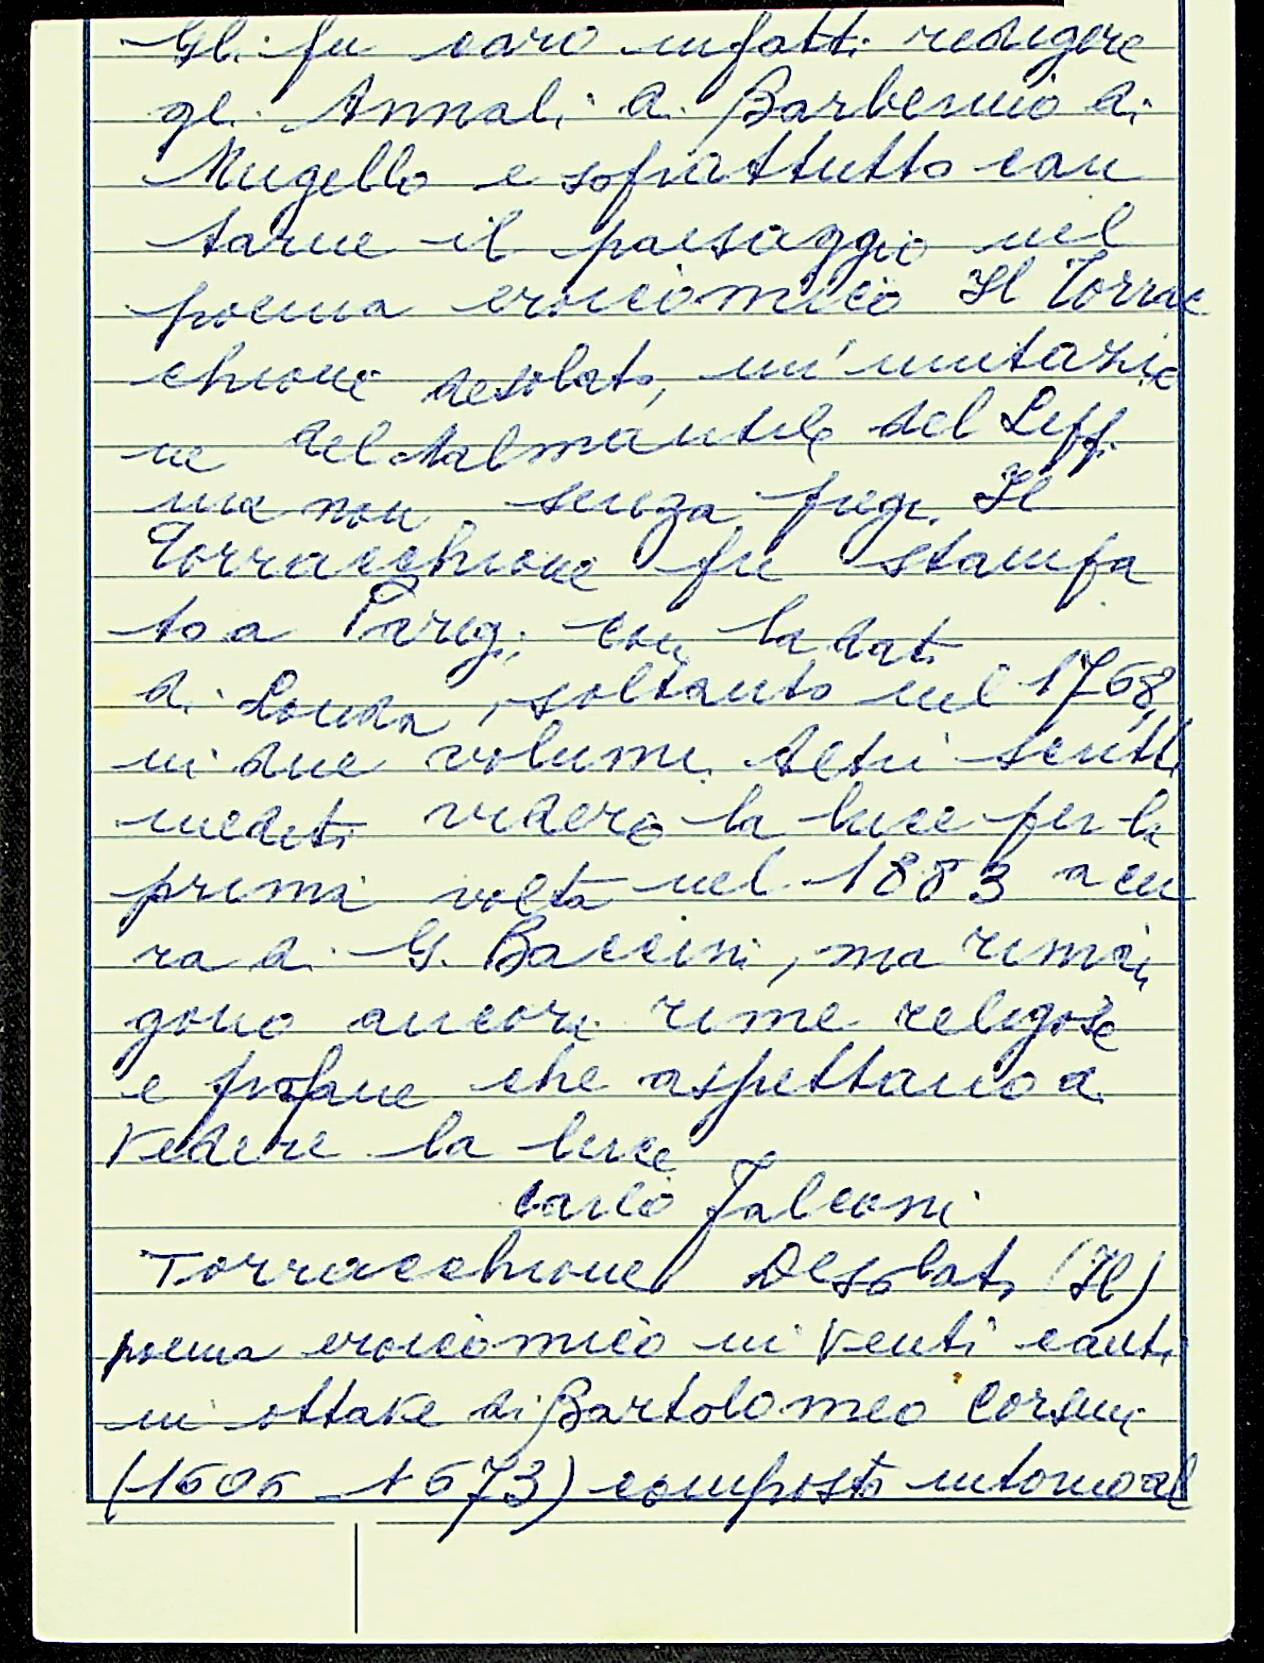 Gli fu caro infatti redigere
gli Annali di Barberino di
Mugello e soprattutto can
tarne il paesaggio nel
poema eroicomico Il Torrac
chione desolato, un'imitazio
ne del Malmantile del Lippi
ma non senza pregi. Il
Torracchione fu stampa
to a Parigi, con la data
di Londra, soltanto nel 1768,
in due volumi. Altri scritti
inediti videro la luce per la
prima volta nel 1883 a cu
ra di G. Baccini, ma riman
gono ancora rime religiose
e profane che aspettano di
vedere la luce
Carlo Falconi
Torracchione Desolato (Il)
poema eroicomico in venti canti
in ottave di Bartolomeo Corsini
(1606 - 1673) composto intorno al